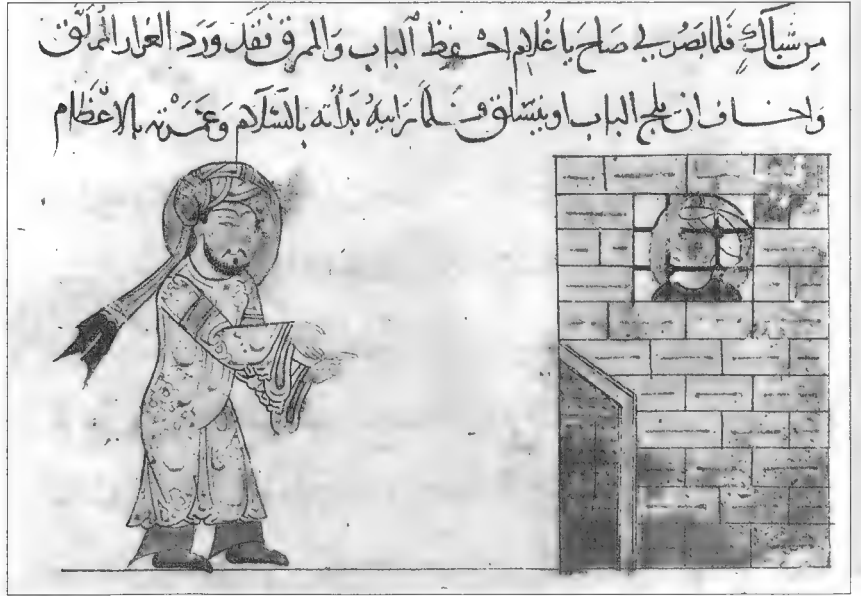 من شباك فلما بصر بي صاح يا غلام احفظ الباب والمرق فقد ورد العرار
واخاف ان يلج الباب او يتسلق فلما رايته بدأته بالسلام وغمرته بالاعظام